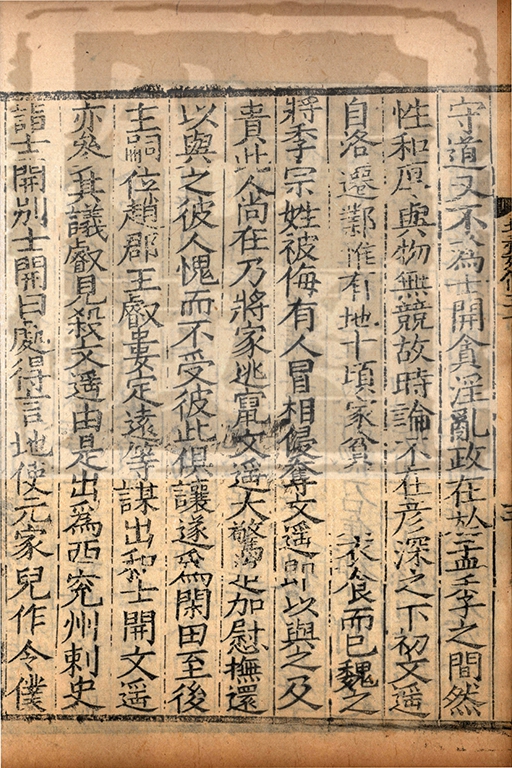 守道又不為士開貪淫亂政在於孟季之間然
性和厚與物無競故時論不在彦深之下初文遥
自洛遷鄴惟有地十頃家貧 衣食而已魏之
將季宗姓被侮有人冒相侵奪文遥即以與之及
貴此人尚在乃將家逃竄文遥大驚追加慰撫還
以與之彼人愧而不受彼此俱讓遂為閑田至後
主嗣位趙郡王叡婁定遠等謀出和士開文遥
亦參其議叡見殺文遥由是出為西兖州刺史
詣士開别士開曰處得言地使元家兒作令僕